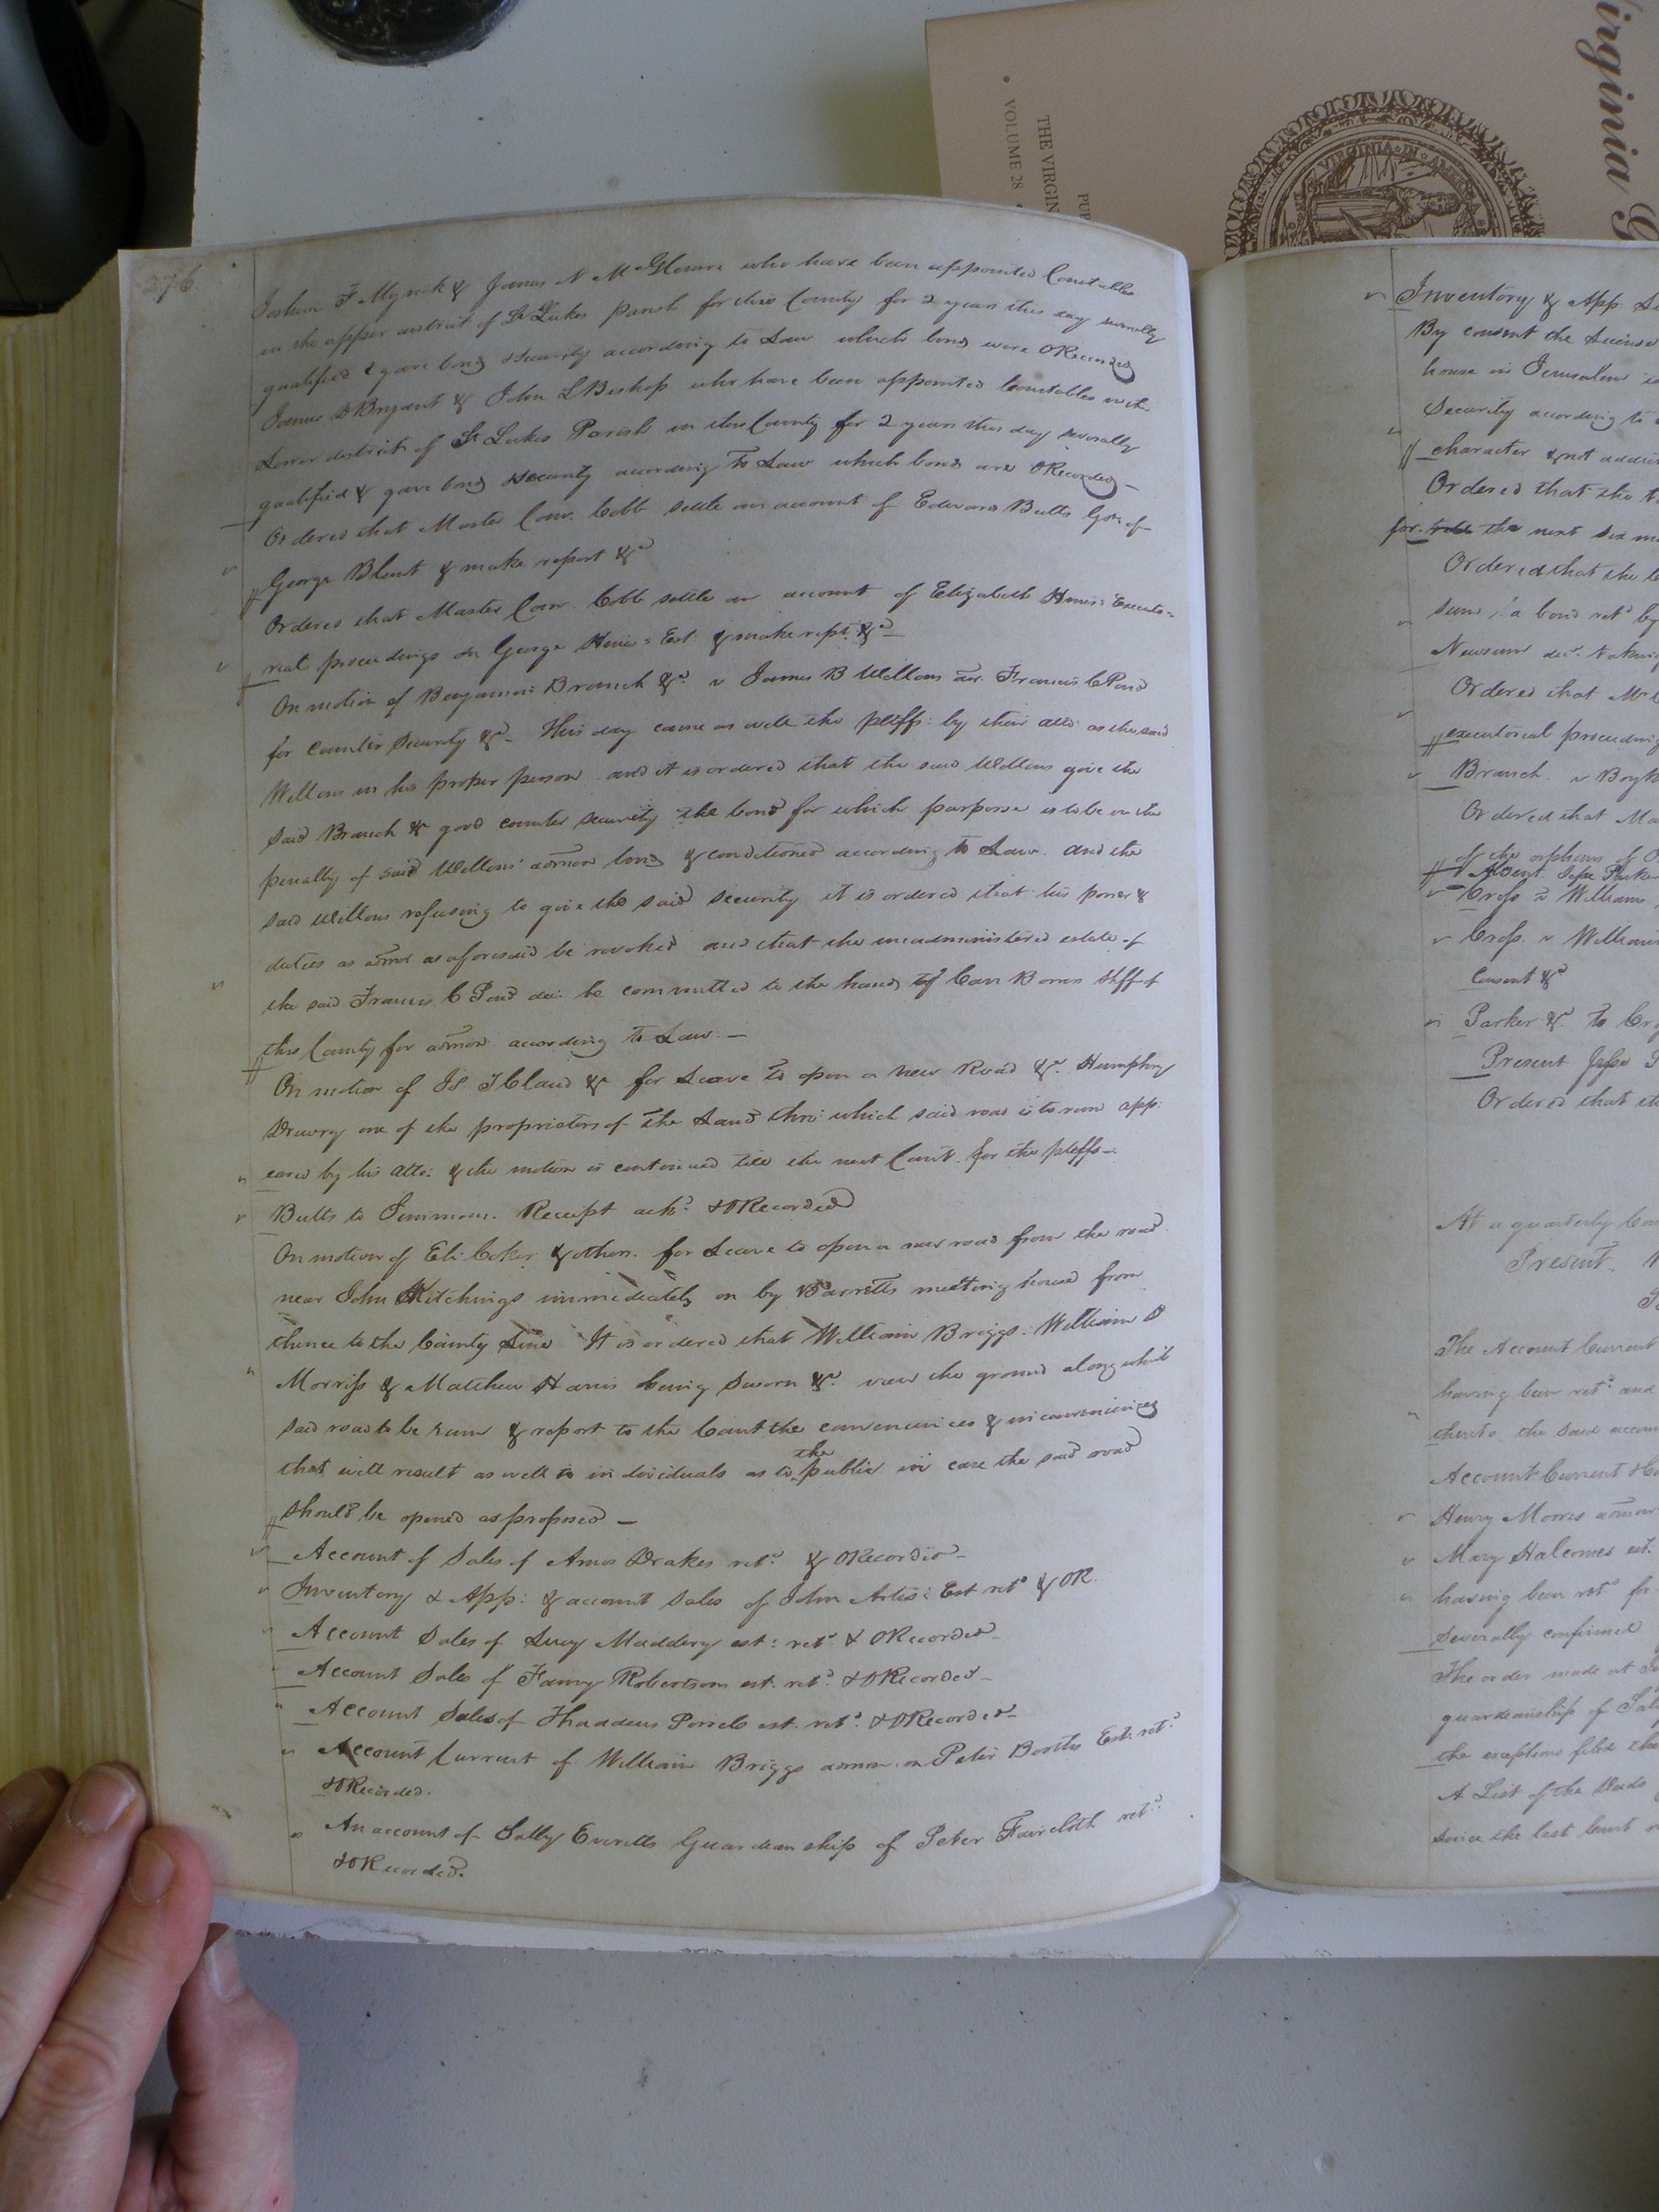 276.
Joshua F Myrick & James N McGlemre who have been appointed Constables
in the upper district of St Lukes Parish for this County for 2 years this day severally
qualified & gave bond & security according to Law which bonds were ORecorded
James D Bryant & John L Bishop who have been appointed Constables in the
Lower district of St Lukes Parish in this County for 2 years this day severally
qualified & gave bond & security according to Law which bonds are ORecorded —
Ordered that Master Com. Cobb settle an account of Edward Butts Gdn of
George Blunt & make report &c
Ordered that Master Com. Cobb settle an account of Elizabeth Hines: Executo-
rial proceedings on George Hines Est: & make rept. &c —
On motion of Benjamin Branch &c. v James B Wellons adr. Francis C Pond
for Counter Security &c — This day came as well the pltffs: by their atto as the said
Wellons in his proper person and it is ordered that the said Wellons give the
said Branch & good counter security the bond for which purpose is to be in the
penalty of said Wellons' admon bond & conditioned according to Law. and the
said Wellons refusing to give the said security it is ordered that his power &
duties as admor as aforesaid be revoked and that the unadministered estate of
the said Francis C Pond dec. be committed to the hands of Carr Bowers Shff of
this County for admon. according to Law. —
On motion of & for Leave to open a new Road &c. Humphry
Drewry one of the proprietors of the Land thro: which said road is to run app:
eared by his atto: & the motion is continued till the next Court. for the pltffs —
Butts to Simmons. Receipt ackd. & ORecorded
On motion of Eli Coker & others. for Leave to open a new road from the road
near John Kitchings immediately on by Barretts meeting house from
thence to the County Line It is ordered that William Briggs. William D
Morriss & Matthew Harris being sworn &c. view the ground along which
said road to be run & report to the Court the conveniences & inconveniences
that will result as well to individuals as to the public in case the said road
should be opened as proposed —
Account of Sales of Amos Drakes retd. & ORecorded —
Inventory & App: & account Sales of John Artis: Est retd & OR.
Account Sales of Lucy Maddery est: retd. & ORecorded —
Account Sales of Fanny Robertsons est. retd. & ORecorded —
Account Sales of Thaddeus Powels est. retd. & ORecorded —
Account Current of William Briggs admor. on Peter Booths Est: retd.
& ORecorded.
An account of Sally Everetts Guardianship of Peter Faircloth retd.
& ORecorded.
Inventory & App:
By consent the License
house in Jerusalem is
Security according to
character & not addic
Ordered that the
for the next six m
Ordered that the
sum in a bond retd by
Newsum decd.
Ordered that Mr
executorial proceeding
Branch. v Boyk
Ordered that Ma
of the orphans of
Absent. Jesse Parker
Cross v Williams
Cross. v William
Consent &c
Parker &c. to
Present Jesse
Ordered that
At a quarterly Cou
Present.
The Account Current
having been retd. and
thereto. the said accou
Account Current
Henry Morris admor
Mary Halcomes est.
having been retd for
severally confirmed
The order made at
guardianship of Sal
the exceptions filed the
A List of the Deeds
since the last Court
THE VIRGIN
VOLUME 28
VIRGINIA